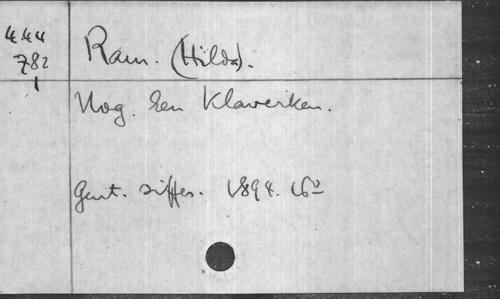 4.44
782
1
Ram. (Hilda).
Nog Een Klaverken.
Gent. Siffer. 1894. 16º